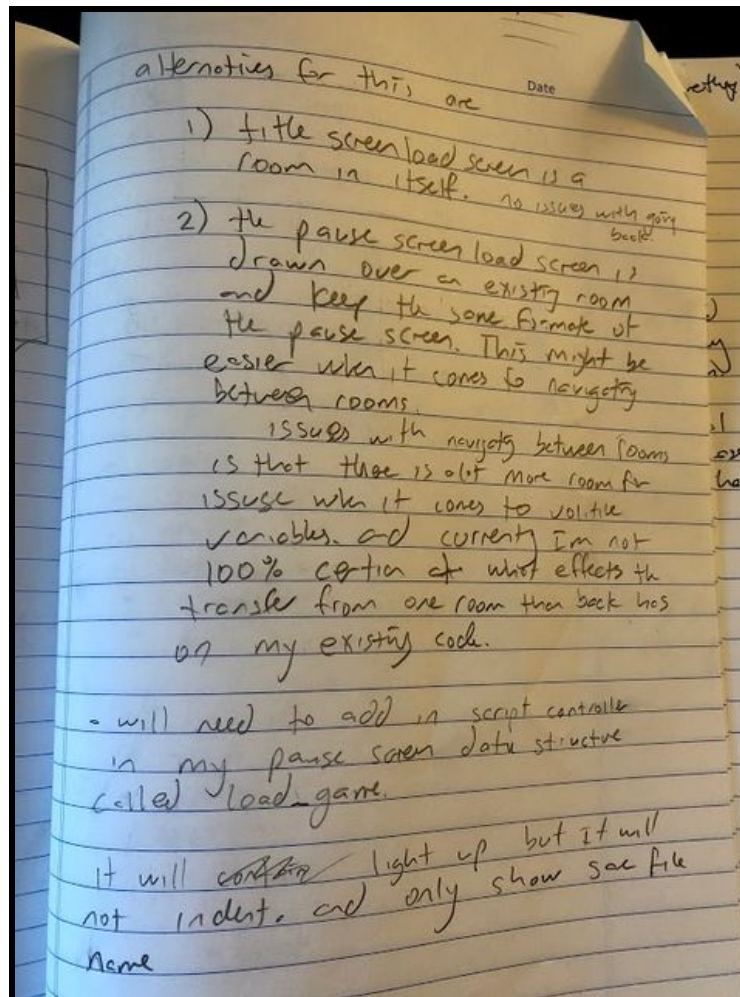 alternatives for this are
Date
1) title screen load screen is a
room in itself. no issues with going
back.
2) the pause screen load screen is
drawn over an existing room
and keep the same formate of
the pause screen. This might be
easier when it comes to navigating
between rooms.
issues with navigating between rooms
is that there is alot more room for
issuse when it comes to volitile
variables. and currently Im not
100% certian of what effects the
transfer from one room then back has
on my existing code.
- will need to add in script controller
in my pause screen data structure
called load_game.
it will light up but it will
not indent. and only show save file
name